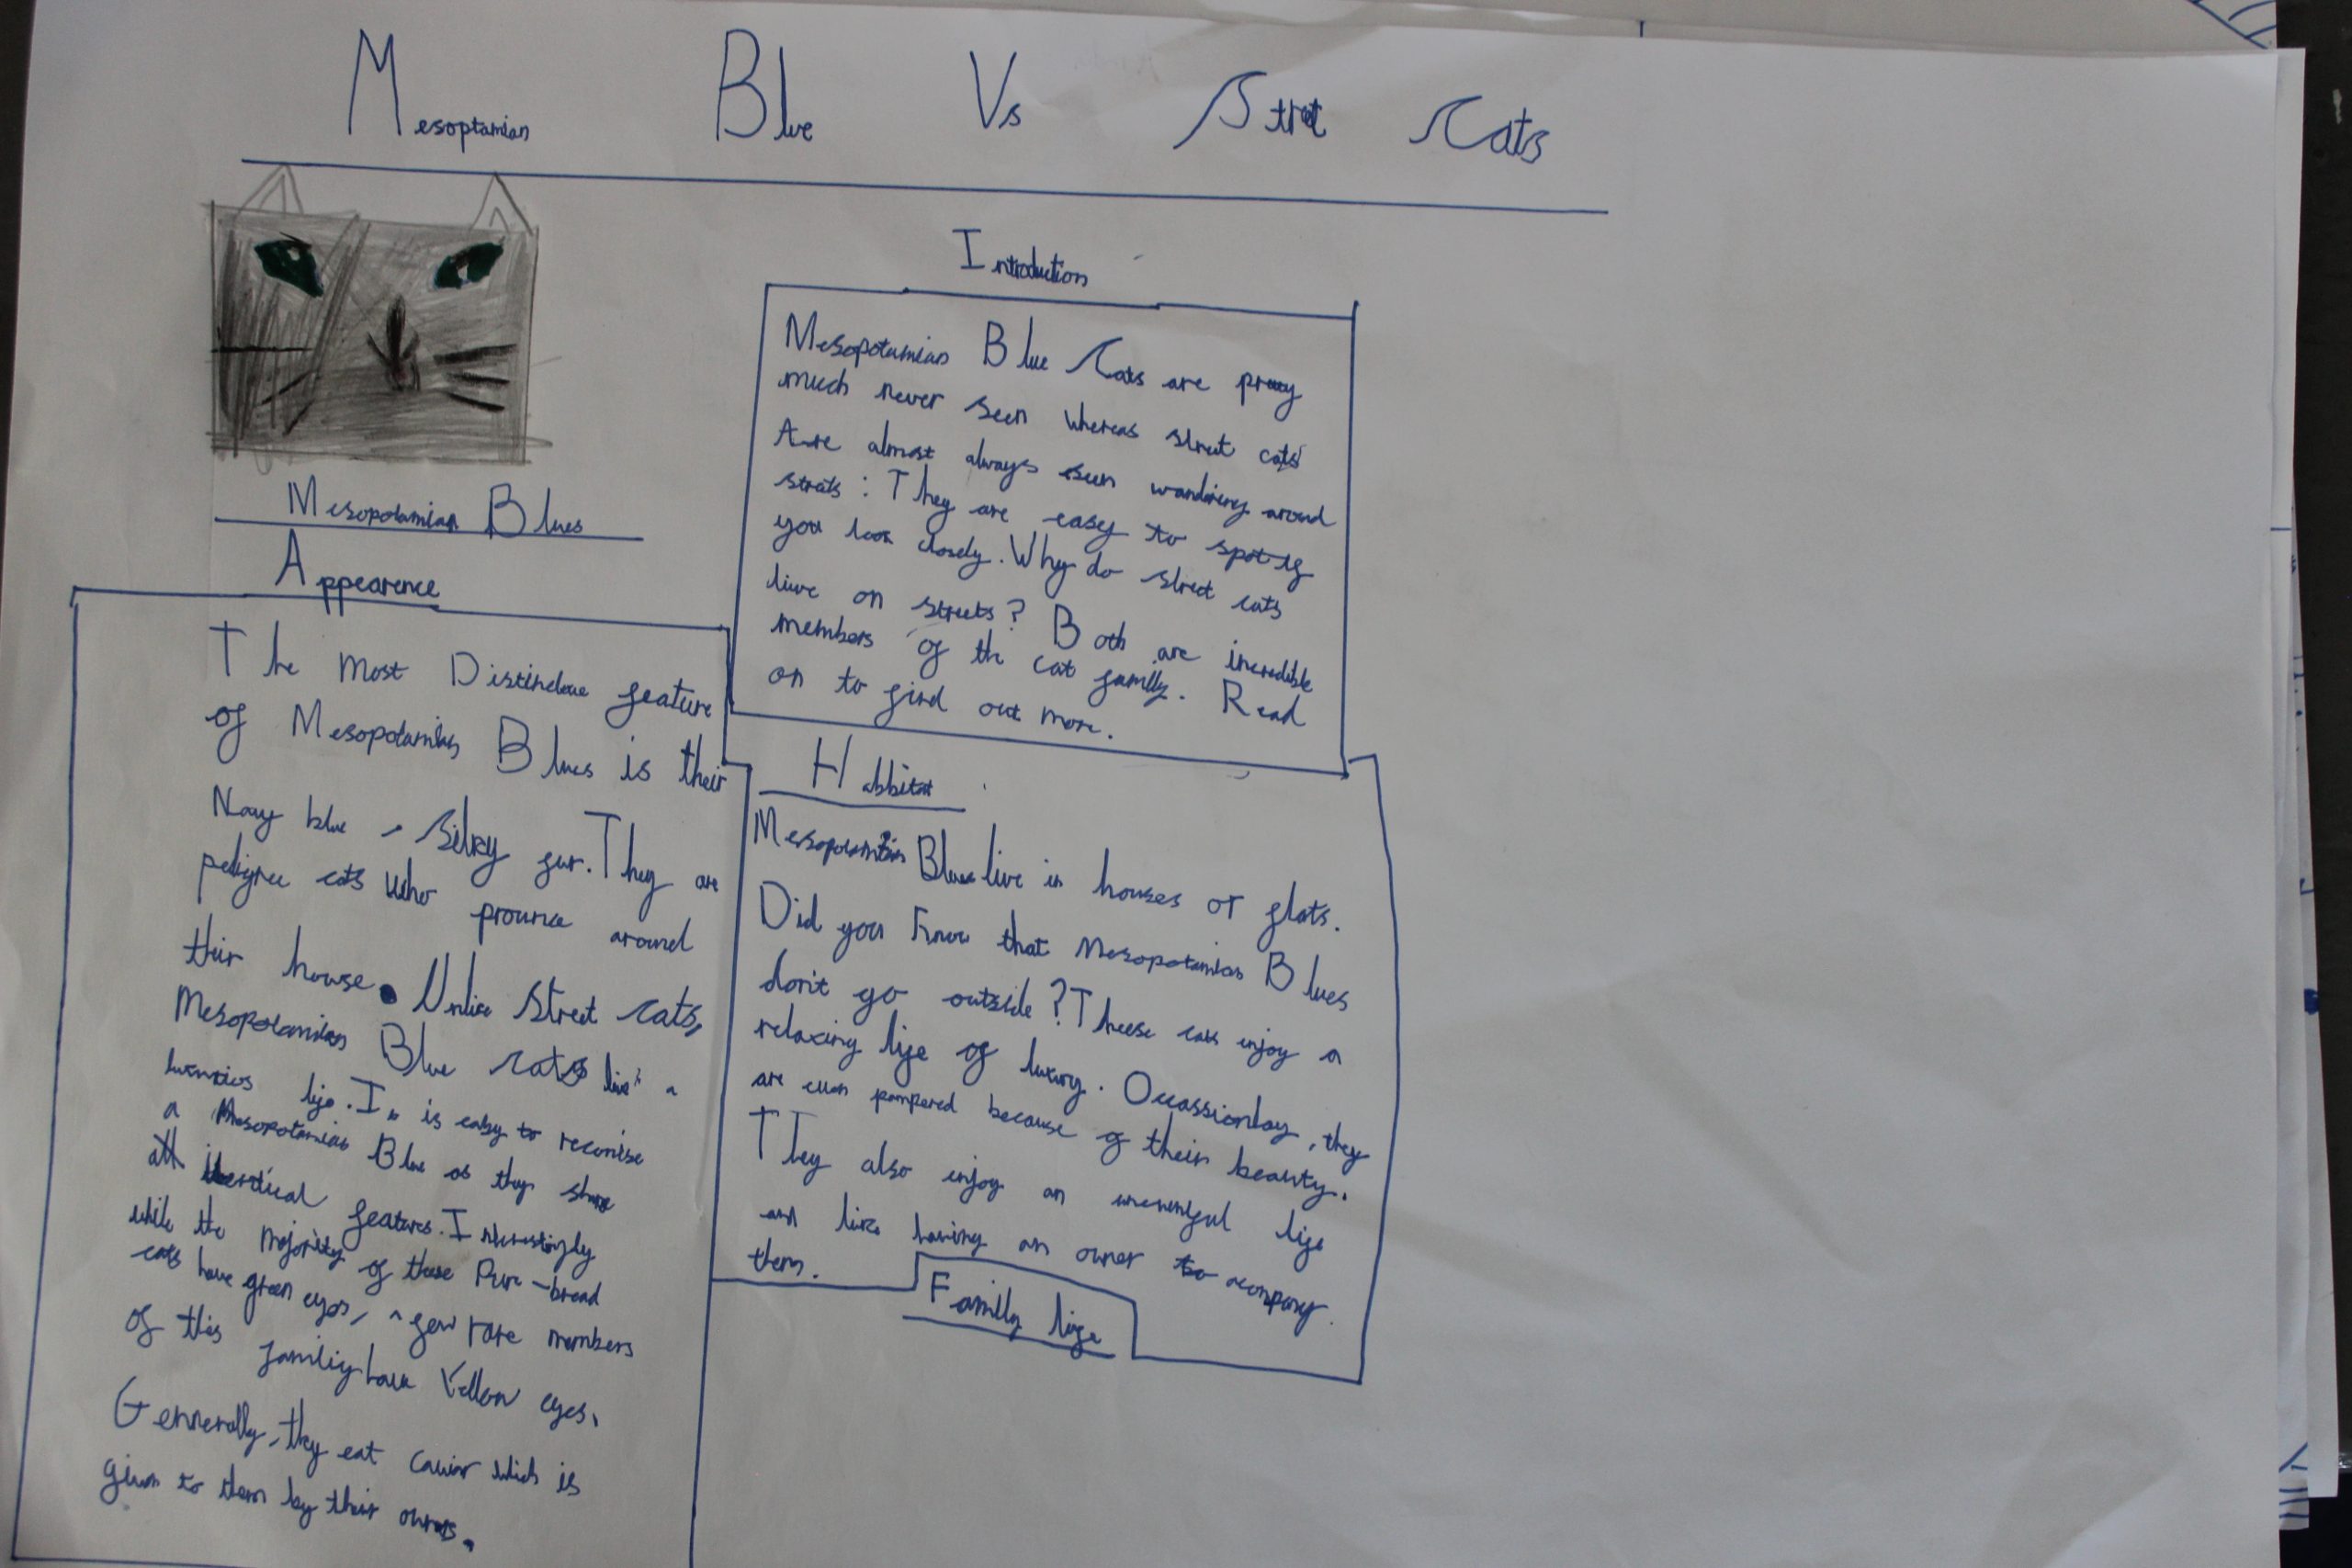 Mesoptamian Blue Vs Street Cats
Introduction
Mesopotamian Blue Cats are pretty
much never seen whereas street cats
Are almost always seen wandering around
streets: They are easy to spot if
you look closely. Why do street cats
live on streets? Both are incredible
members of the cat family. Read
on to find out more.
Mesopotamian Blues
Appearence
The most Distinctive feature
of Mesopotamian Blues is their
Navy blue, silky fur. They are
pedigree cats who prounce around
their house. Unlike street cats,
Mesopotamian Blue cats live a
life. It is easy to reconise
a Mesopotamian Blue as they share
all identical features. Interestingly
while the majority of these Pure-bread
cats have green eyes, a few rare members
of this family have Yellow eyes.
Gennerally, they eat caviar which is
given to them by their owners.
Habbitat
Mesopotamian Blues live in houses or flats.
Did you know that Mesopotamian Blues
don't go outside? Theese cats enjoy a
relaxing life of luxury. Occassionlay, they
are even pampered because of their beauty.
They also enjoy an uneventful life
and like having an owner to acompany
them.
Family life